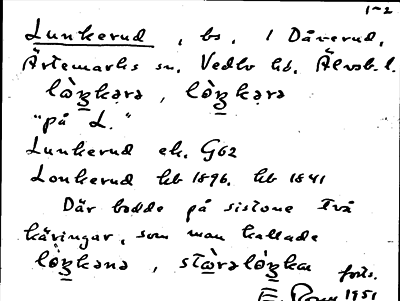 1-2
Lunkerud, bs. i Dåverud,
Ärtemarks sn. Vedbo hd. Älvsb. l.
lòŋkərə, lòŋkərə
"på L."
Lunkerud ek. G62
Lonkerud kb 1896. kb 1841
Där bodde på sistone två
käringar, som man kallade
lòŋkənə, stàrəlòŋka forts.
1951